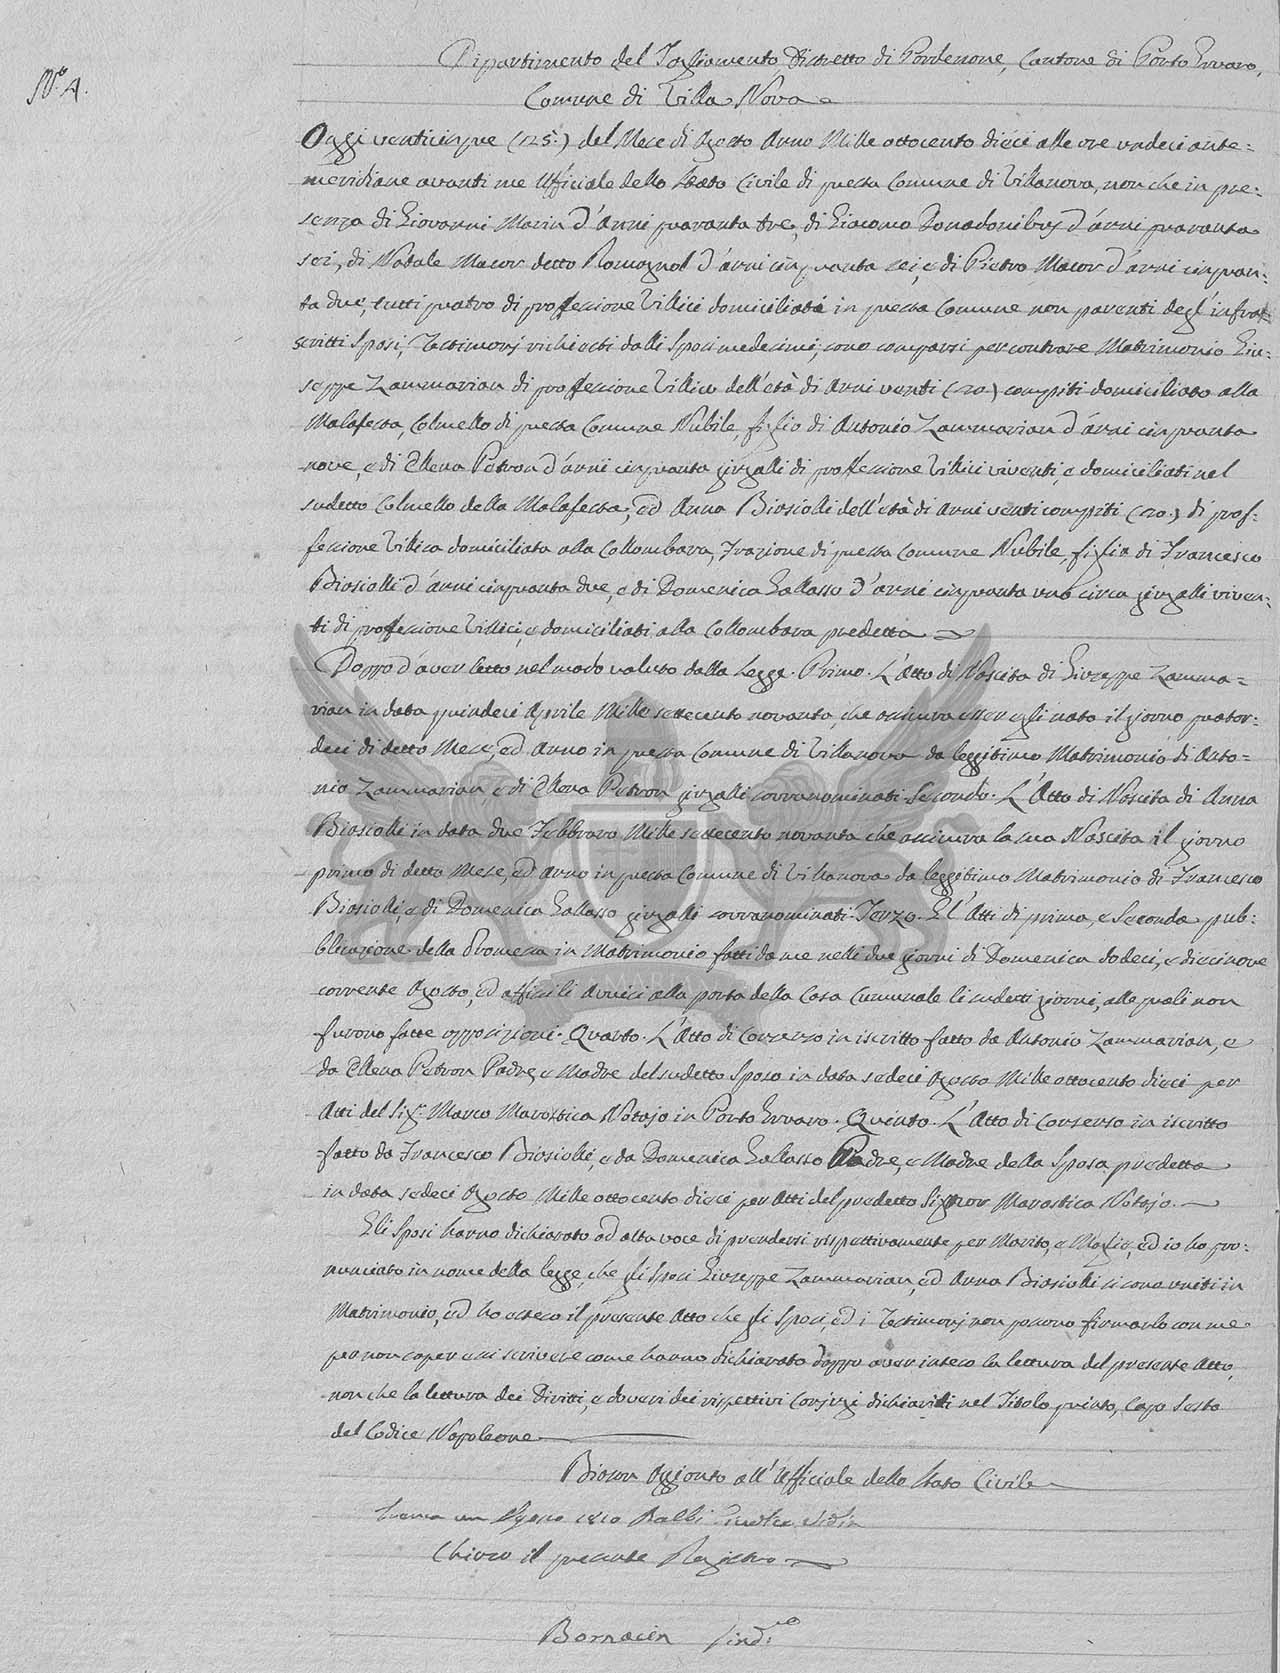 N.º 4.
Dipartimento del Tagliamento Distretto di Pordenone, Cantone di Porto Gruaro,
Comune di Villa Nova
Oggi venticinque (125.) del Mese di Agosto Anno Mille ottocento dieci alle ore undeci ante=
meridiane avanti me Ufficiale dello Stato Civile di questa Comune di Villanova, non che in pre=
senza di Giovanni Marin d'Anni quaranta tre, di Giacomo Donadonibus d'anni quaranta
sei, di Nadale Macor detto Romagnol d'anni cinquanta sei, e di Pietro Macor d'anni cinquan=
ta due, tutti quatro di proffessione Villici domiciliati in questa Comune non parenti degl'infra=
scritti Sposi, Testimonj richiesti dalli Sposi medesimi, sono comparsi per contrare Matrimonio Giu=
seppe Zammarian di proffessione Villico dell'età di Anni venti (20.) compiti domiciliato alla
Malafesta, Colmello di questa Comune Nubile, figlio di Antonio Zammarian d'anni cinquanta
nove, e di Ellena Petron d'anni cinquanta giugalli di proffessione Villici viventi, e domiciliati nel
sudetto Colmello della Malafesta, ed Anna Biasiolli dell'età di Anni venti compiti (20.) di prof=
fessione Villica domiciliata alla Collombara, Frazione di questa Comune Nubile, figlia di Francesco
Biasiolli d'anni cinquanta due, e di Domenica Gallasso d'anni cinquanta uno circa giugalli viven=
ti di proffessione Villici, e domiciliati alla Collombara predetta
Doppo d'aver letto nel modo valuto dalla Legge. Primo. L'Atto di Nascita di Giuseppe Zamma=
rian in data quindeci Aprile Mille settecento novanta, che assicura esser egli nato il giorno quator=
deci di detto Mese, ed Anno in questa Comune di Villanova da leggitimo Matrimonio di Anto=
nio Zammarian, e di Ellena Petron giugalli sovranominati. Secondo. L'Atto di Nascita di Anna
Biasiolli in data due Febbraro Mille settecento novanta che assicura la sua Nascita il giorno
primo di detto Mese, ed Anno in questa Comune di Villanova da leggitimo Matrimonio di Francesco
Biasiolli, e di Domenica Gallasso giugalli sovranominati. Terzo. Gl'Atti di prima, e Seconda pub=
blicazione della Promessa in Matrimonio fatti da me nelli due giorni di Domenica dodeci, e diecinove
corrente Agosto, ed affissi li Avvisi alla porta della Casa Cumunale li sudetti giorni, alle quali non
furono fatte opposizioni. Quarto. L'Atto di Consenso in iscritto fatto da Antonio Zammarian, e
da Ellena Petron Padre, e Madre del sudetto Sposo in data sedeci Agosto Mille ottocento dieci per
Atti del Sig.r Marco Marostica Notajo in Porto Gruaro. Quinto. L'Atto di Consenso in iscritto
fatto da Francesco Biasiolli, e da Domenica Gallasso Padre, e Madre della Sposa predetta
in data sedeci Agosto Mille ottocento dieci per Atti del predetto Signor Marostica Notajo.
Gli Sposi hanno dichiarato ad alta voce di prendersi rispettivamente per Marito, e Moglie, ed io ho pro=
nunciato in nome della legge, che gli Sposi Giuseppe Zammarian, ed Anna Biasiolli si sono uniti in
Matrimonio, ed ho esteso il presente Atto che gli Sposi, ed i Testimonj non possono firmarlo con me
per non saper essi scrivere come hanno dichiarato doppo aver inteso la lettura del presente Atto,
non che la lettura dei Diritti, e doveri dei rispettivi Conjugi dichiariti nel Titolo quinto, Capo Sesto
del Codice Napoleone
Biason Aggionto all'Ufficiale dello Stato Civile
Balbi Giudice
Chiuso il presente Registro
Bornacin Sind.co